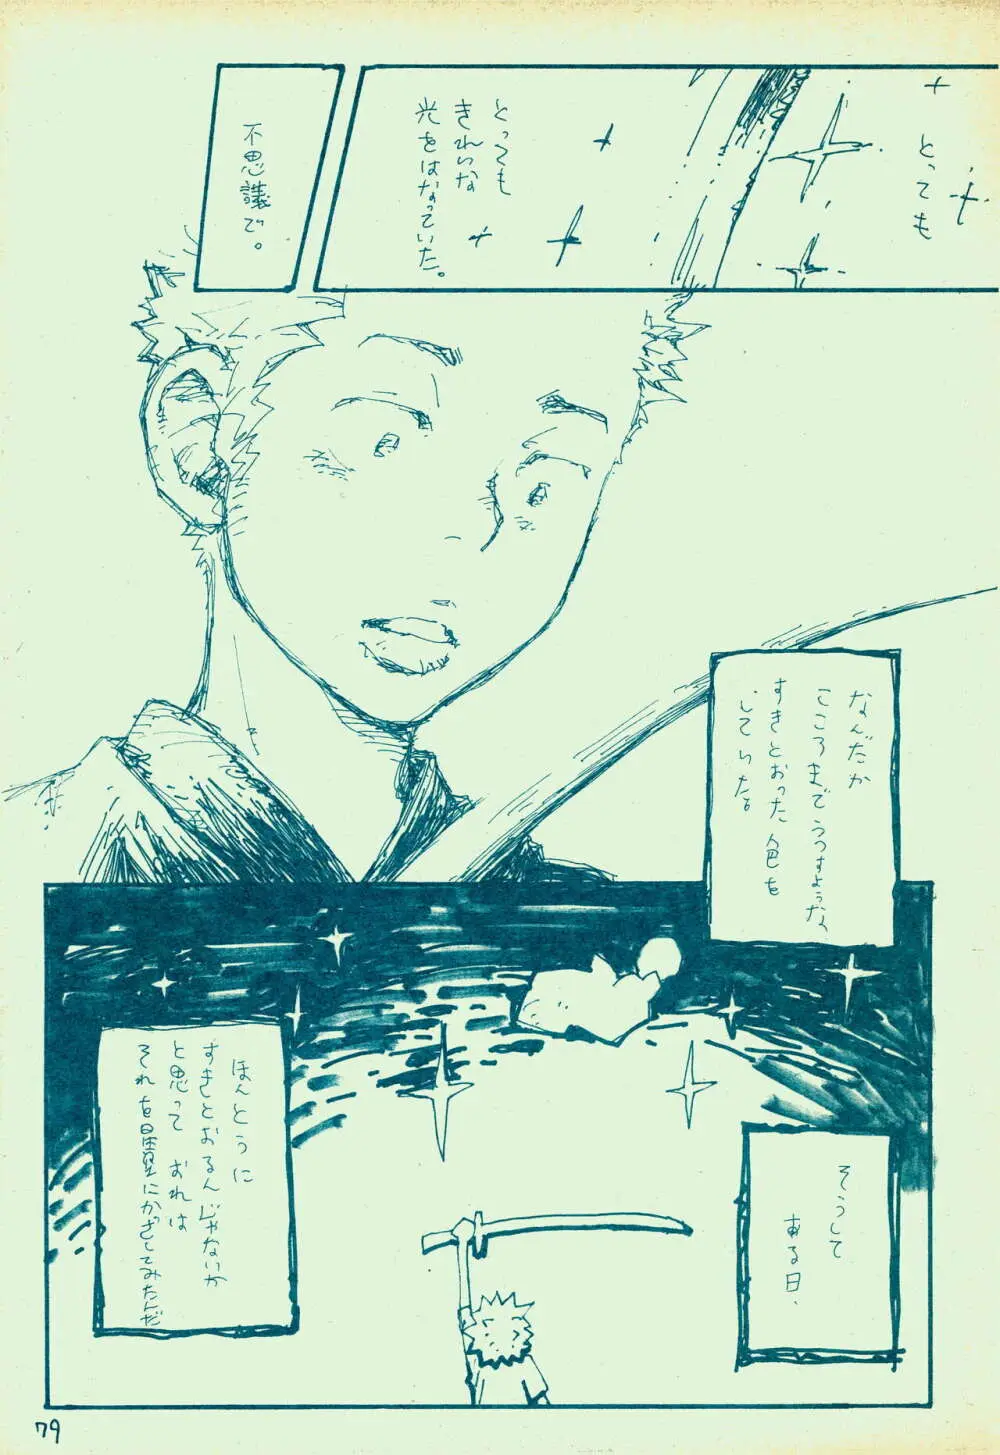 とっても
とっても
きれいな
光をはなっていた。
不思議で。
なんだか
こころまでうつすような、
すきとおった色を
していた。
そうして
ある日、
ほんとうに
すきとおるんじゃないか
と思って おれは
それを星雲にかざしてみたんだ
79